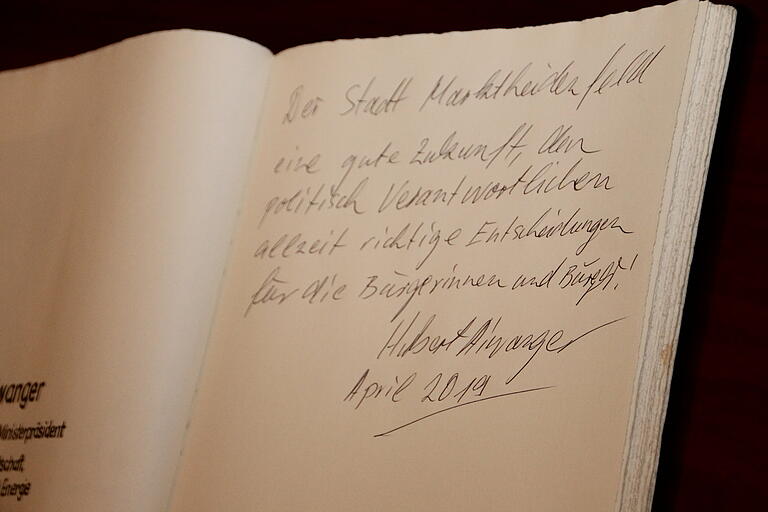 wanger
Ministerpräsident
tschaft,
Energie
Der Stadt Marktheidenfeld
eine gute Zukunft, den
politisch Verantwortlichen
allzeit richtige Entscheidungen
für die Bürgerinnen und Bürger!
Hubert Aiwanger
April 2019